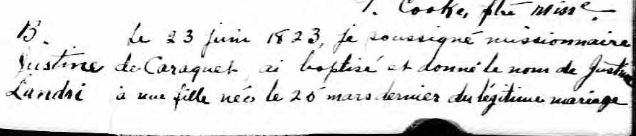 T. Cooke, ptre miss.
B. Le 23 juin 1823, je soussigné missionnaire
Justine de Caraquet, ai baptisé et donné le nom de Justine
Landri à une fille née le 20 mars dernier du légitime mariage